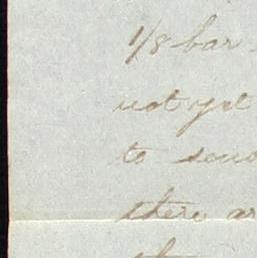 1/8 bar
not yet
to send
there ar